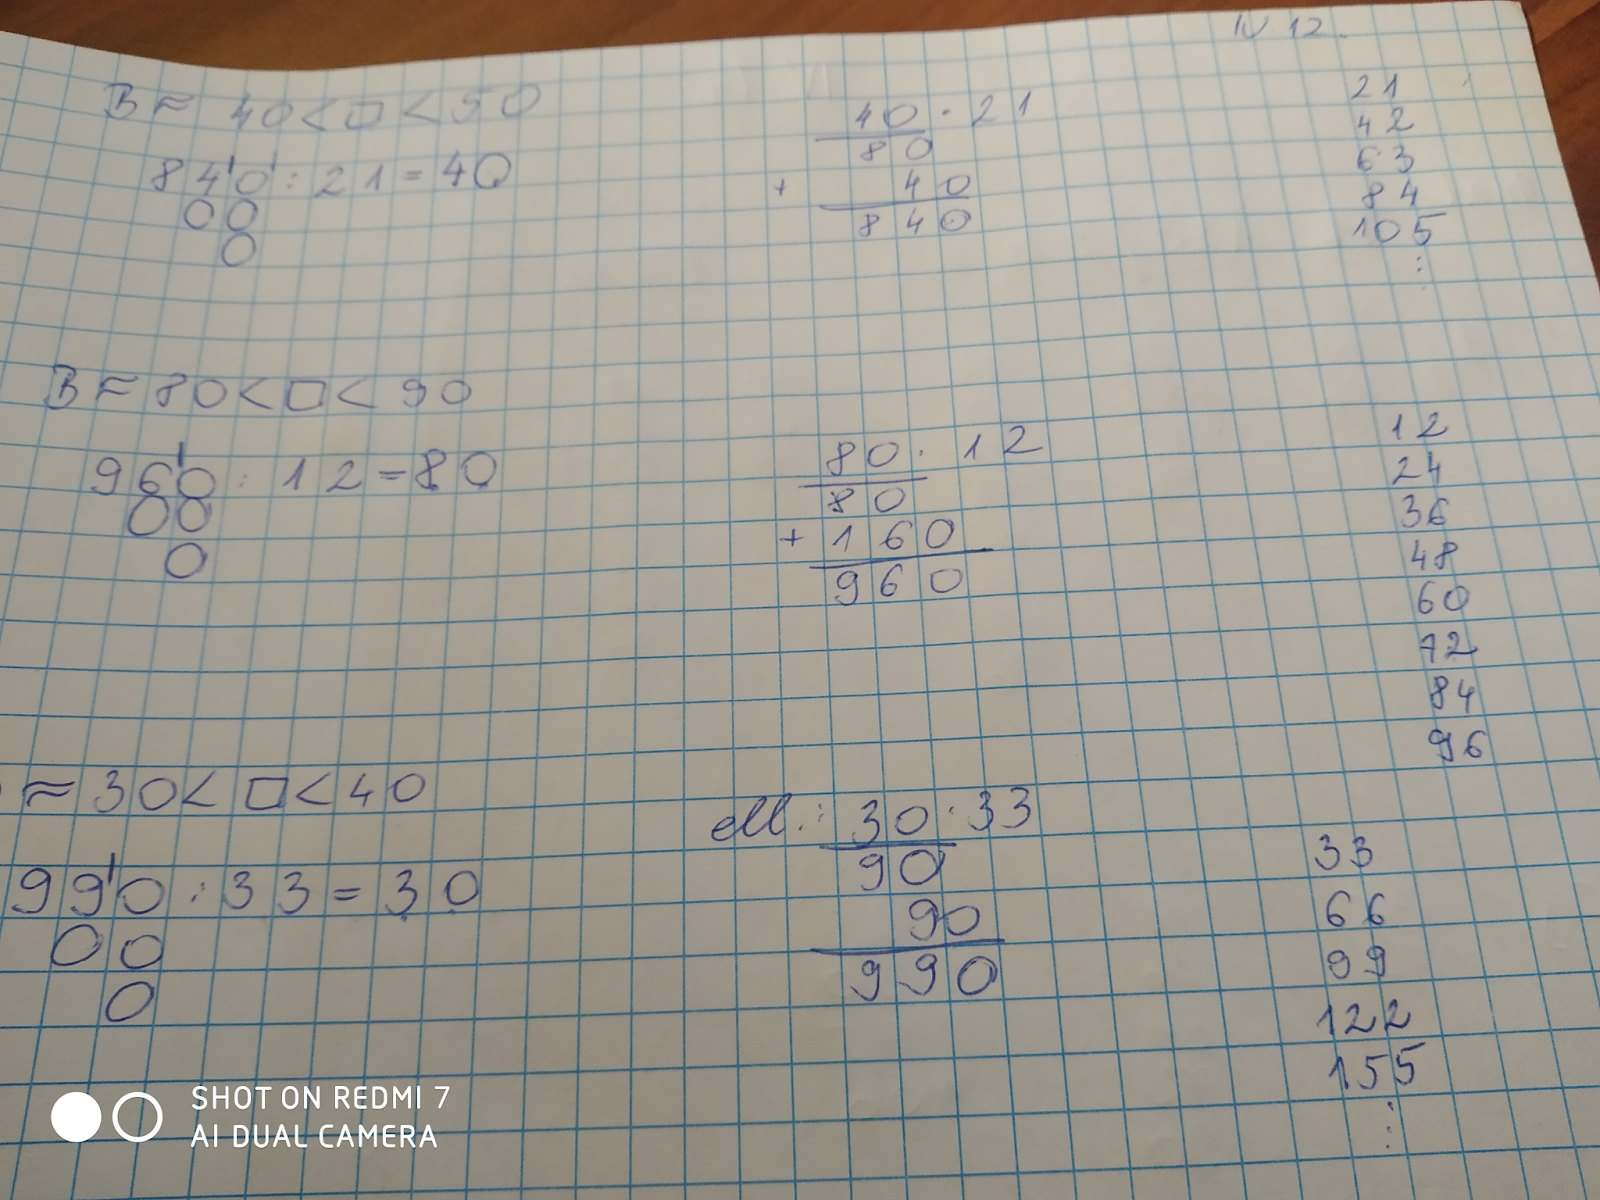 N 12.
B ≈ 40 < □ < 50
840 : 21 = 40
00
0
40 · 21
80
+ 40
840
21
42
63
84
105
⋮
B ≈ 80 < □ < 90
960 : 12 = 80
00
0
80 · 12
80
+ 160
960
12
24
36
48
60
72
84
96
≈ 30 < □ < 40
990 : 33 = 30
00
0
ell.: 30 · 33
90
90
990
33
66
99
122
155
⋮
SHOT ON REDMI 7
AI DUAL CAMERA